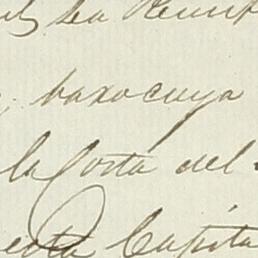 La Reun
baxo cuya
la Costa del
esta Capita